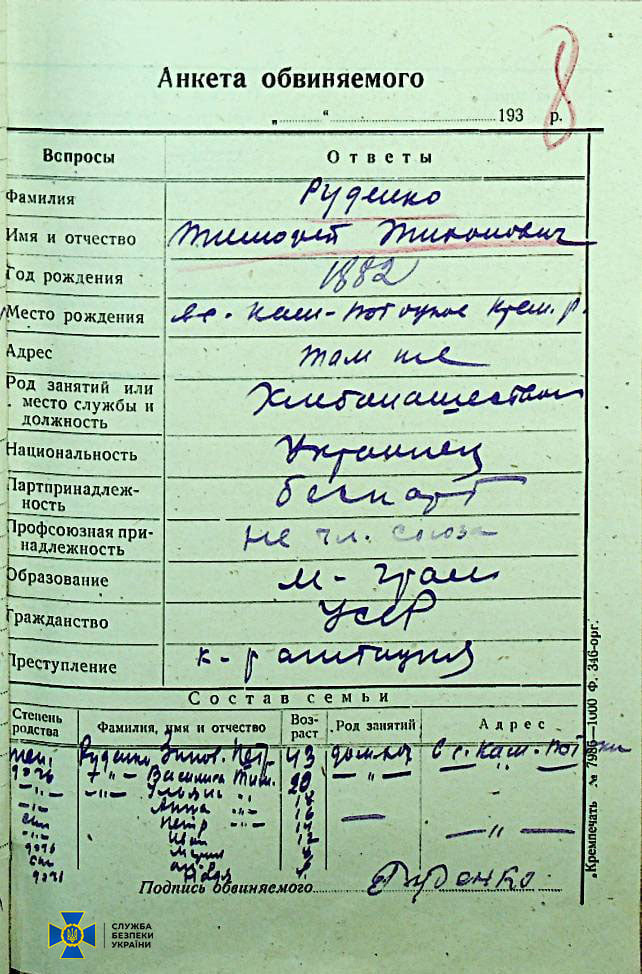 8
Анкета обвиняемого
„ “ 193 р.
Вопросы Ответы
Фамилия Руденко
Имя и отчество Тимофей Тихонович
Год рождения 1882
Место рождения с. Кам-Потоцкое Крем. р.
Адрес там же
Род занятий или место службы и должность Хлебопашеством
Национальность Украинец
Партпринадлеж-
ность беспарт
Профсоюзная при-
надлежность не чл. союза
Образование м-грам
Гражданство УССР
Преступление к-р агитация
Состав семьи
Степень родства Фамилия, имя и отчество Воз-
раст Род занятий Адрес
жен. Руденко Зинов. Пет. 43 домхоз с. Кам-Потоки
дочь -"- Василиса Тим. 20 -"- -"-
-"- -"- Ульян "
-"- Анна -"- 16
сын Петр -"- 14
-"- Иван 12
дочь Мария
сын
дочь Надя
Подпись обвиняемого Руденко
„Кремпечать № 7986—1000 Ф. 346-орг.
СЛУЖБА
БЕЗПЕКИ
УКРАЇНИ